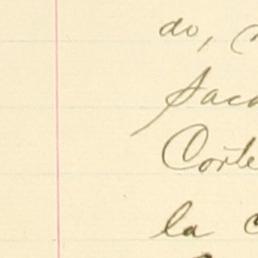 do,
Saca
Corte
la c